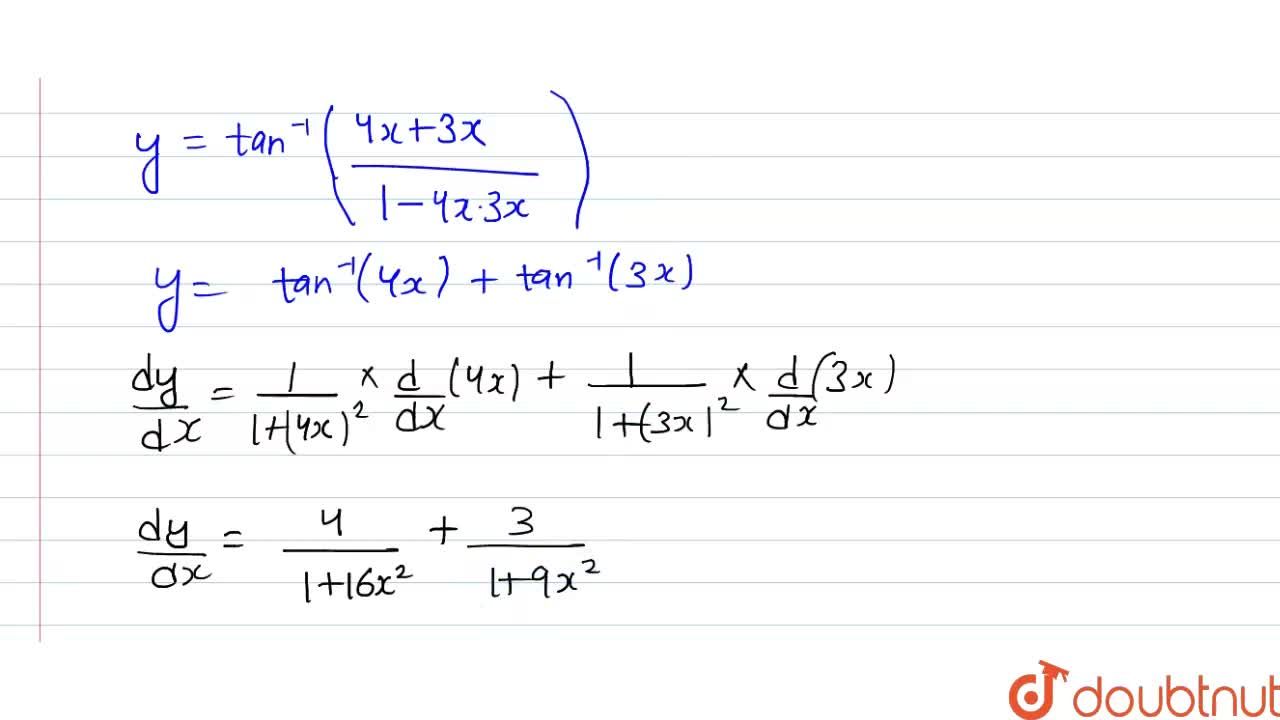 y = tan⁻¹((4x+3x)/(1-4x·3x))
y = tan⁻¹(4x) + tan⁻¹(3x)
dy/dx = 1/(1+(4x)²) × d/dx (4x) + 1/(1+(3x)²) × d/dx (3x)
dy/dx = 4/(1+16x²) + 3/(1+9x²)
doubtnut